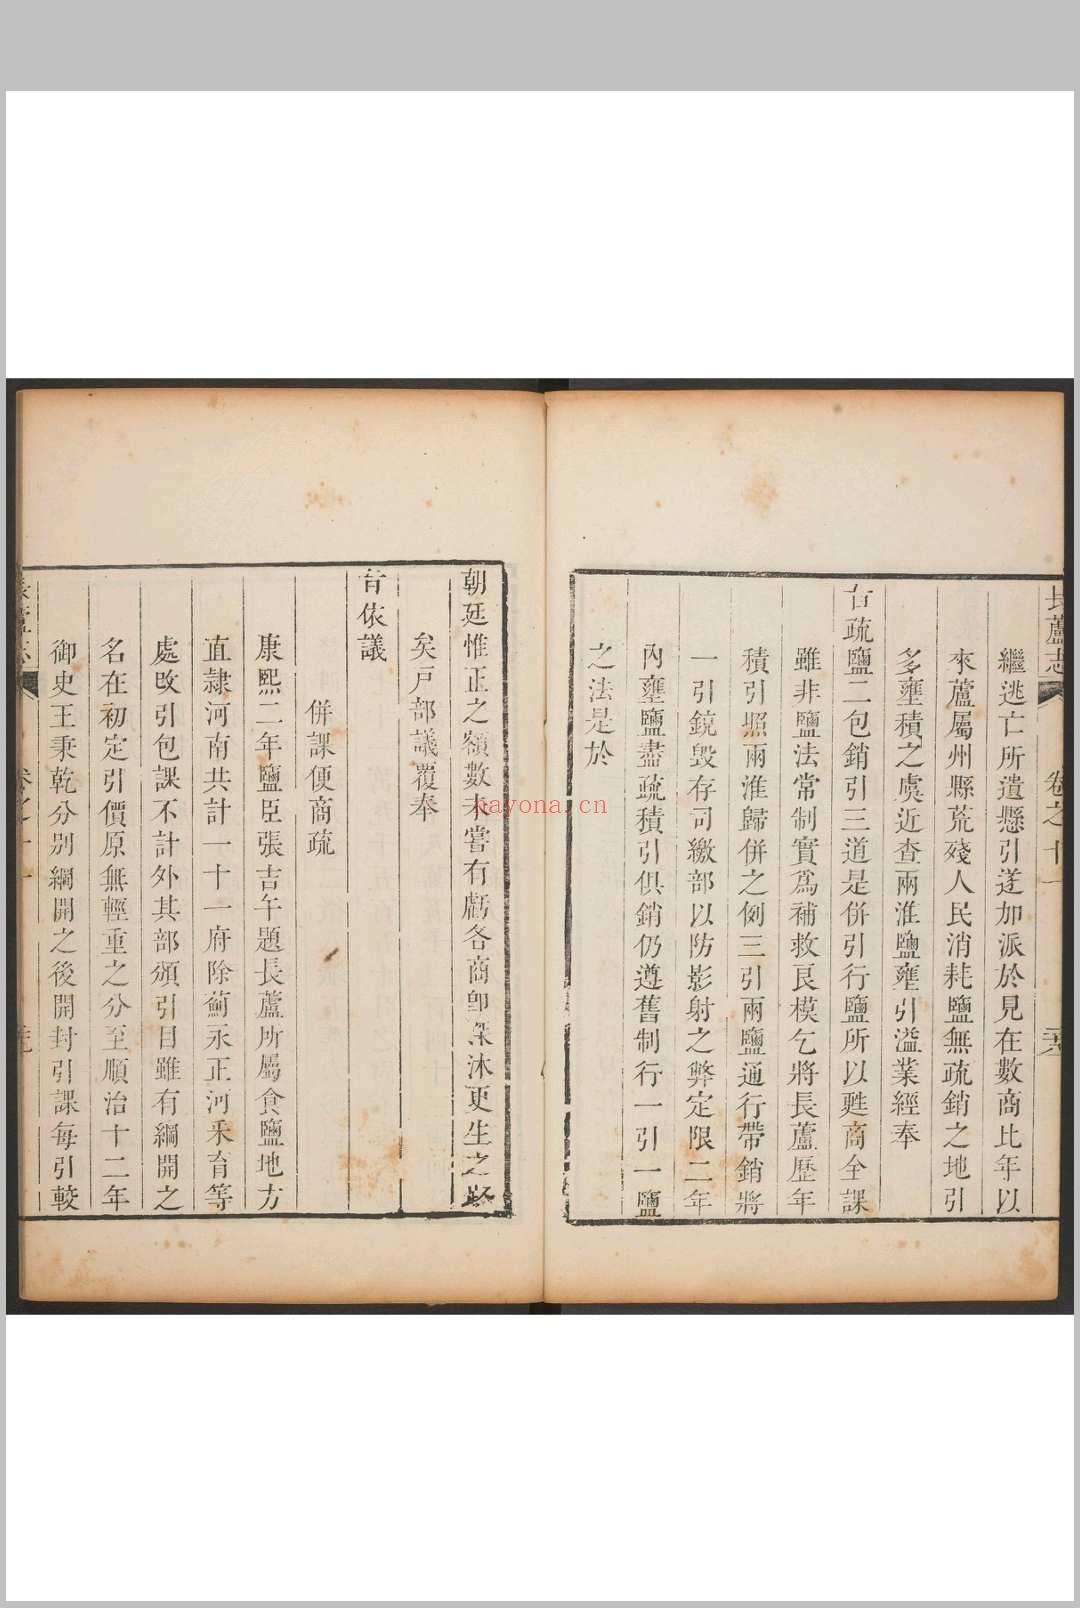 長蘆志 卷之十一
繼逃亡所遺懸引遂加派於見在數商比年以
來蘆屬州縣荒殘人民消耗鹽無疏銷之地引
多壅積之虞近查兩淮鹽壅引溢業經奉
旨疏鹽二包銷引三道是併引行鹽所以甦商全課
雖非鹽法常制實爲補救良模乞將長蘆歷年
積引照兩淮歸併之例三引兩鹽通行帶銷將
一引鏡毀存司繳部以防影射之弊定限二年
內壅鹽盡疏積引俱銷仍遵舊制行一引一鹽
之法是於
朝廷惟正之額數未嘗有虧各商卽深沐更生之路
矣戸部議覆奉
旨依議
併課便商疏
康熙二年鹽臣張吉午題長蘆所屬食鹽地方
直隸河南共計一十一府除薊永正河釆育等
處改引包課不計外其部頒引目雖有綱開之
名在初定引價原無輕重之分至順治十二年
御史王秉乾分別綱開之後開封引課每引較
nayona.cn